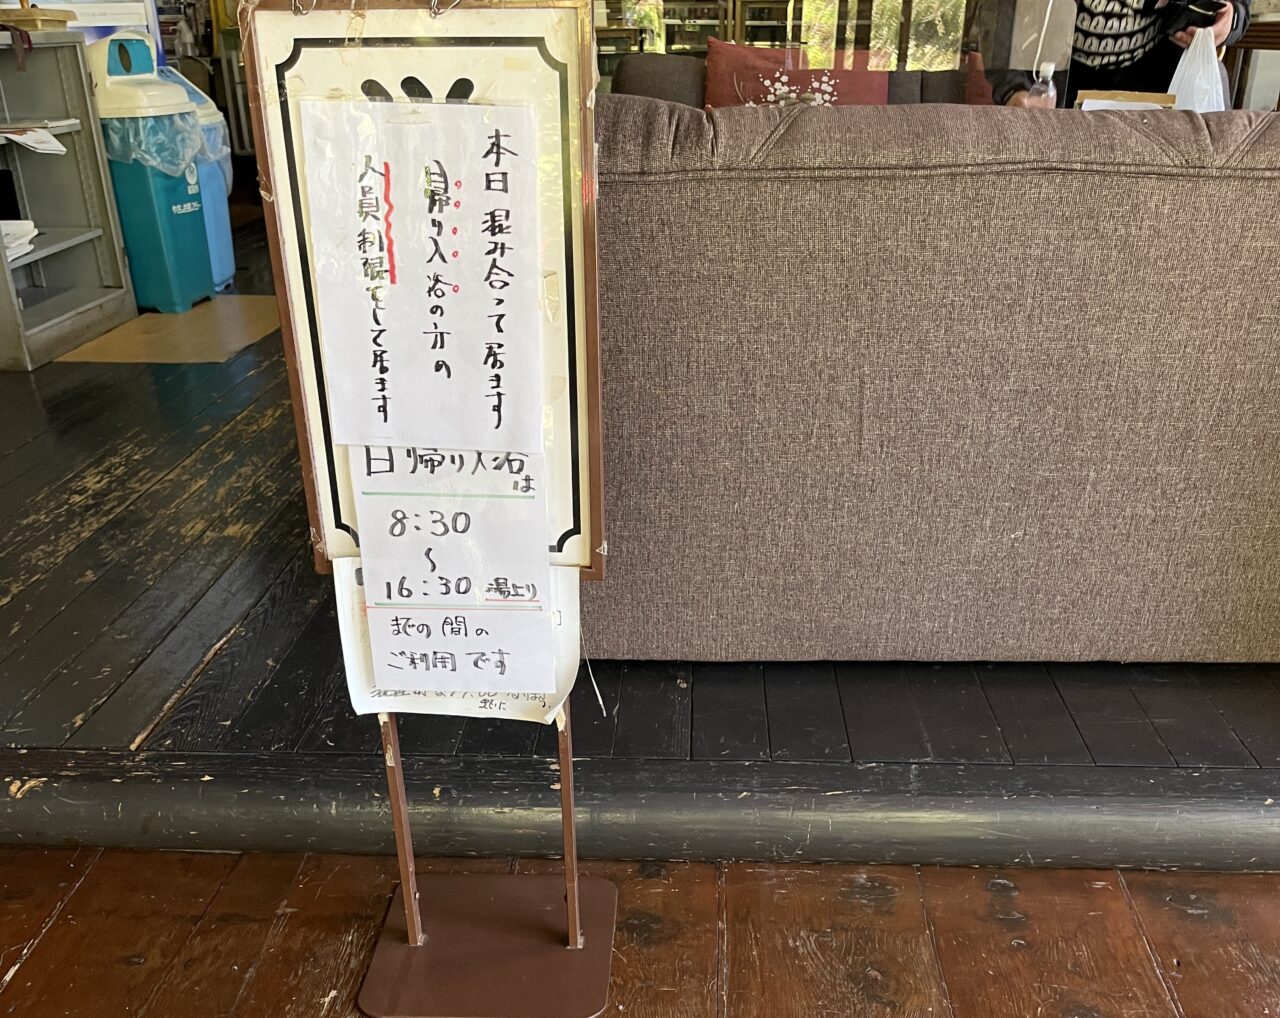 本日混み合って居ます
日帰り入浴の方の
人員制限をして居ます
日帰り入浴は
8:30
～
16:30 湯上り
までの間の
ご利用です